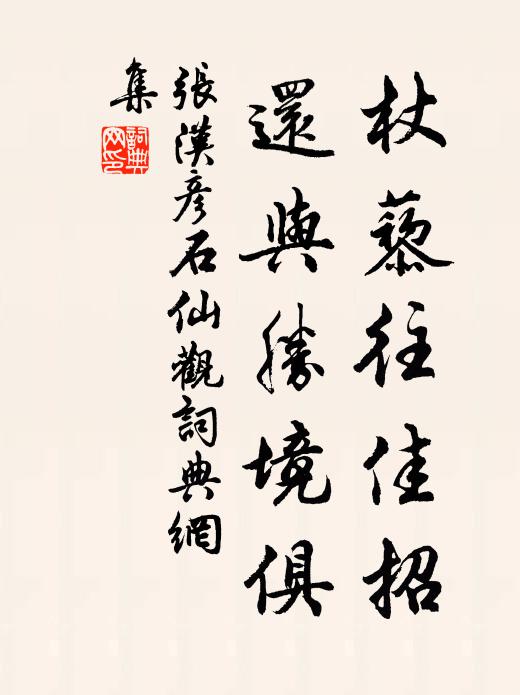 杖藜往佳招
還與勝境俱
張漢彥石仙觀詞典網
集
詞典
网印